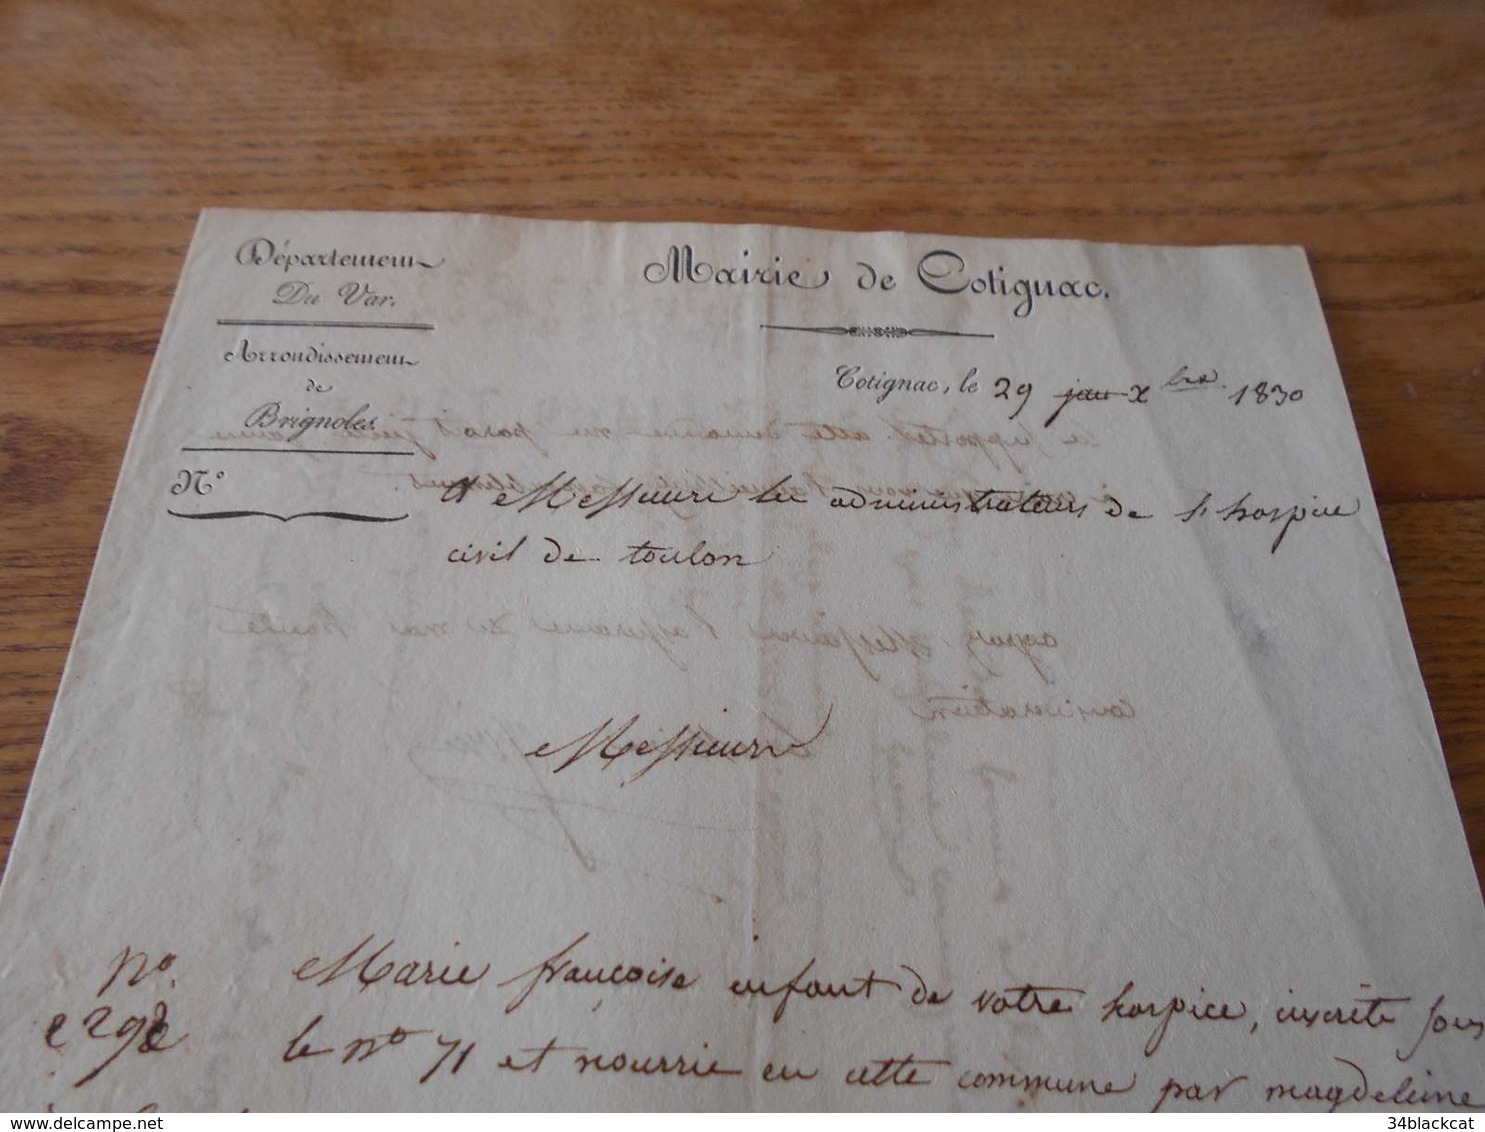 Département
Du Var.
Arrondissement
de
Brignoles.
N°
Mairie de Cotignac.
Cotignac, le 29 jan x bre 1830
A Messieurs les administrateurs de l'hospice
civil de toulon
Messieurs
n°.
Marie françoise enfant de votre hospice, inscrite sous
le n° 71 et nourrie en cette commune par magdeleine
www.delcampe.net
34blackcat